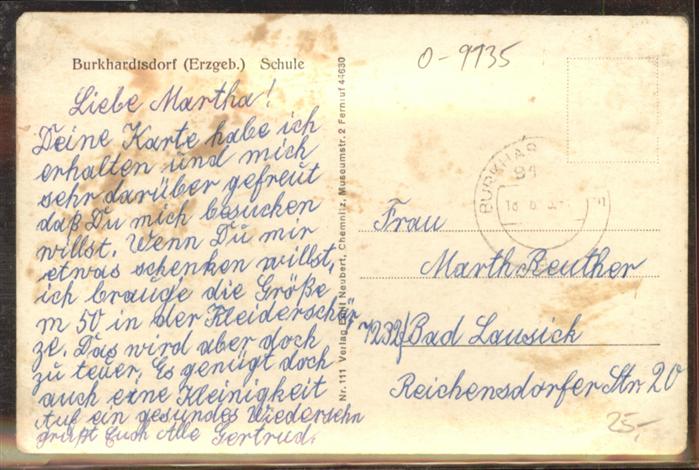 Burkhardtsdorf (Erzgeb.) Schule
O-9135
Liebe Martha!
Deine Karte habe ich
erhalten und mich
sehr darüber gefreut
daß Du mich besucken
willst. Wenn Du mir
etwas schenken willst,
ich brauge die Größe
m 50 in der Kleiderschür
ze. Das wird aber doch
zu teuer. Es genügt doch
auch eine Kleinigkeit
Auf ein gesundes Wiedersehn
grüßt Euch Alle Gertrud.
Nr. 111 Verlag Neubert, Chemnitz, Museumstr. 2 Fernruf 44630
BURKHAR
Frau
Marth Reuther
7232 Bad Lausick
Reichensdorfer Str. 20
25,-